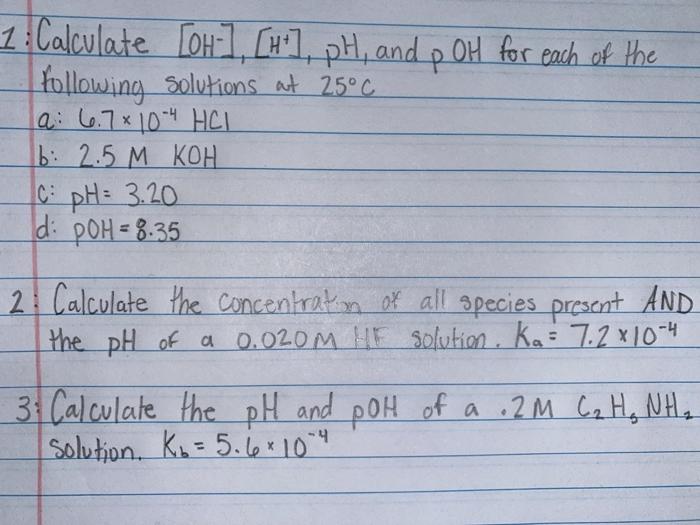 1: Calculate [OH⁻], [H⁺], pH, and pOH for each of the
following solutions at 25°C
a: 6.7 × 10⁻⁴ HCl
b: 2.5 M KOH
c: pH = 3.20
d: pOH = 8.35
2: Calculate the concentration of all species present AND
the pH of a 0.020M HF solution. Ka = 7.2 × 10⁻⁴
3: Calculate the pH and pOH of a .2M C₂H₅NH₂
solution. Kb = 5.6 × 10⁻⁴